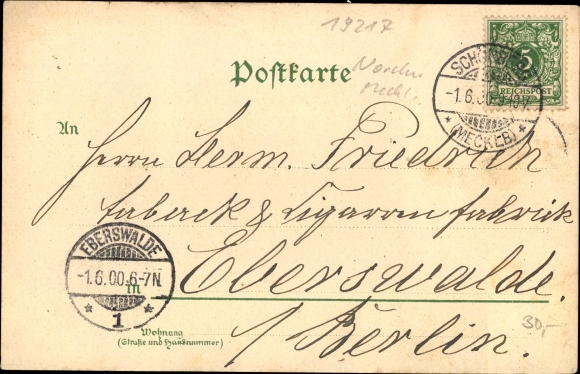 19217
Postkarte
5
REICHSPOST
-1.6.00
(MECKEB)
An
Herrn Herm. Friedrich
Taback & Cigarren fabrick
EBERSWALDE
-1.6.00.6-7N.
1
in
Eberswalde.
Wohnung
(Straße und Hausnummer)
/ Berlin.
30,-